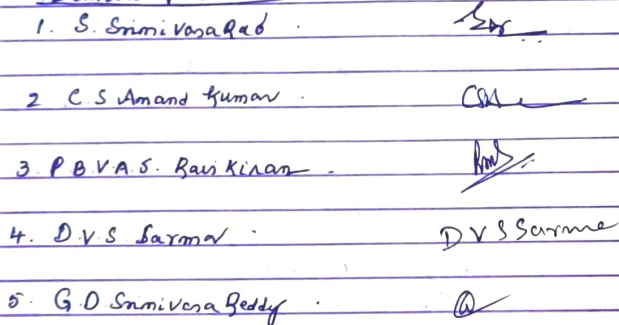 1. S. Srinivasa Rao .
2 C S Anand Kumar .
3. P B.V.A.S. Ravi Kiran .
4. D.V.S Sarma . D V S Sarma
5. G.D Srinivasa Reddy .